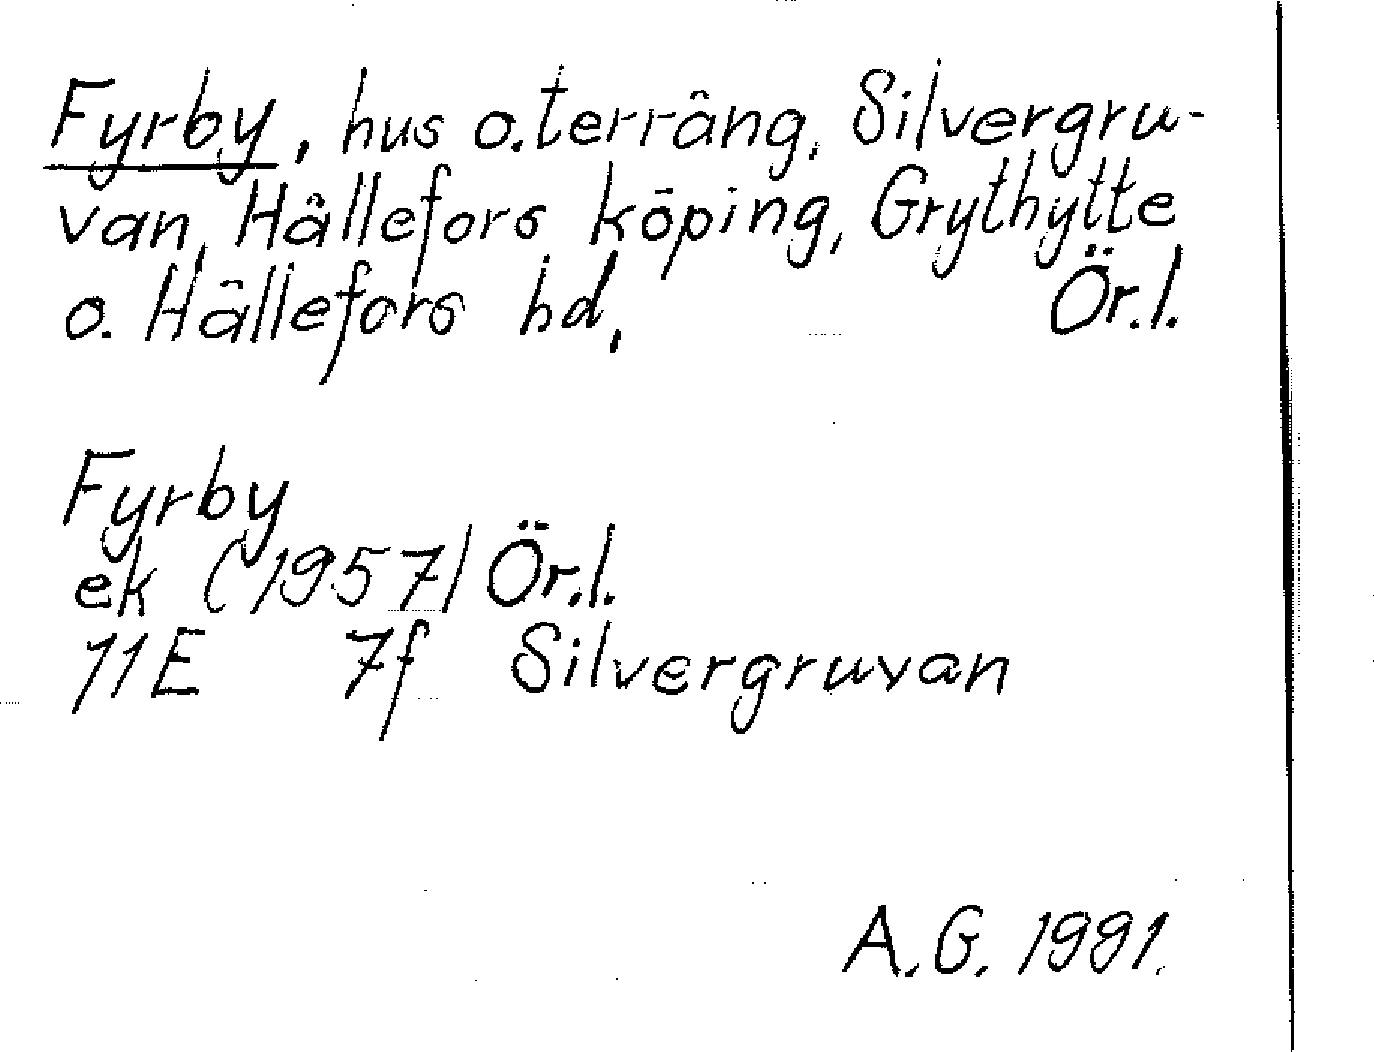 Fyrby, hus o. terräng, Silvergru-
van, Hällefors köping, Grythytte
o. Hällefors hd, Ör.l.
Fyrby
ek (1957) Ör.l.
11E 7f Silvergruvan
A.G. 1991.